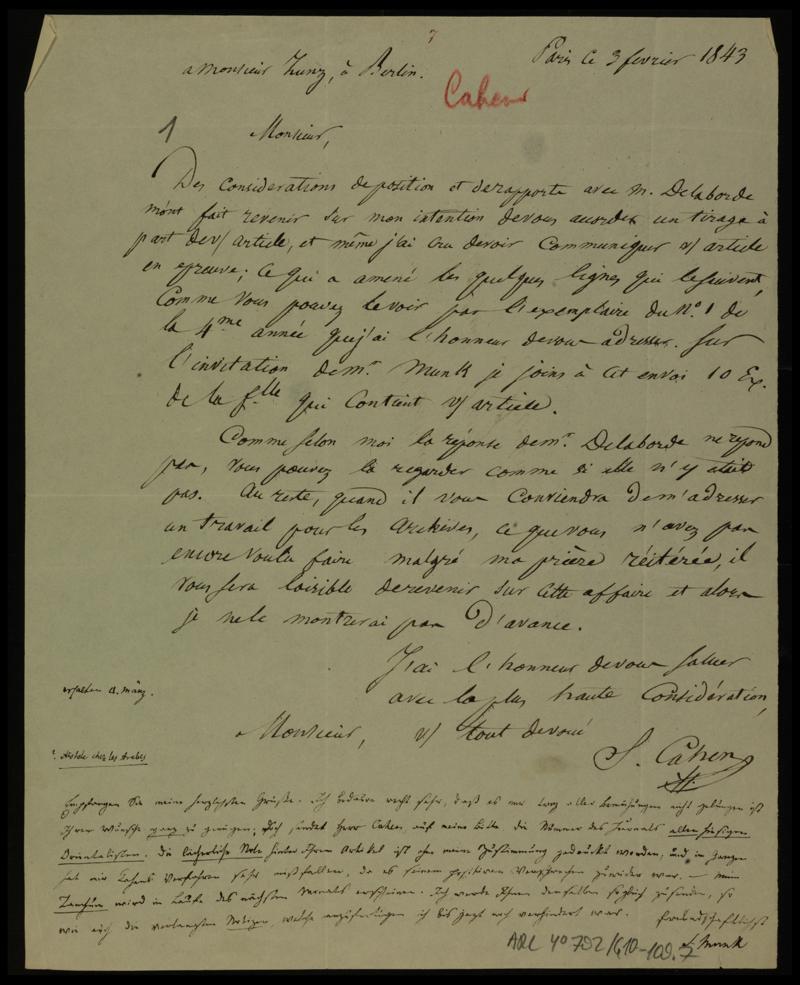 7
Paris ce 3 fevrier 1843
a Monsieur Zunz, à Berlin.
Cahen
1
Monsieur,
Des considerations de position et de rapports avec m. Delaborde
m'ont fait revenir sur mon intention de vous accorder un tirage à
part de v/ article, et même j'ai cru devoir communiquer v/ article
en epreuve; ce qui a amené les quelques lignes qui le suivent,
comme vous pouvez le voir par l'exemplaire du N.o 1 de
la 4me année que j'ai l'honneur de vous adresser. Sur
l'invitation de mr. Munk je joins à cet envoi 10 Ex.
de la flle qui contient v/ article.
Comme selon moi la réponse de mr. Delaborde ne repond
pas, vous pouvez la regarder comme si elle n'y etait
pas. Au reste, quand il vous conviendra de m'adresser
un travail pour les Archives, ce que vous n'avez pas
encore voulu faire malgré ma prière réitérée, il
vous sera loisible de revenir sur cette affaire et alors
je ne le montrerai pas d'avance.
J'ai l'honneur de vous saluer
avec la plus haute considération,
Monsieur, v/ tout devoué
S. Cahen
erhalten d. März.
chez les Arabes
Empfangen Sie meine herzlichsten Grüße. Ich bedaure recht sehr, daß es mir trotz aller Bemühungen nicht gelungen ist
Ihrem Wunsche ganz zu genügen; Herr Cahen, auf meine Bitte die Nummer des Journals allen hiesigen
Orientalisten. Die lächerliche Note hinter Ihrem Artikel ist ohne meine Zustimmung gedruckt worden, und im Ganzen
hat mir Cahens Verfahren sehr mißfallen, da es seinem positiven Versprechen zuwider war. — Mein
Tanchum wird im Laufe des nächsten Monats erscheinen. Ich werde Ihnen denselben sogleich zusenden, so
wie auch die verlangten Notizen, welche anzufertigen ich bis jetzt noch verhindert war. Freundschaftlichst
S. Munk
ARC 4o 792/G10-109.7